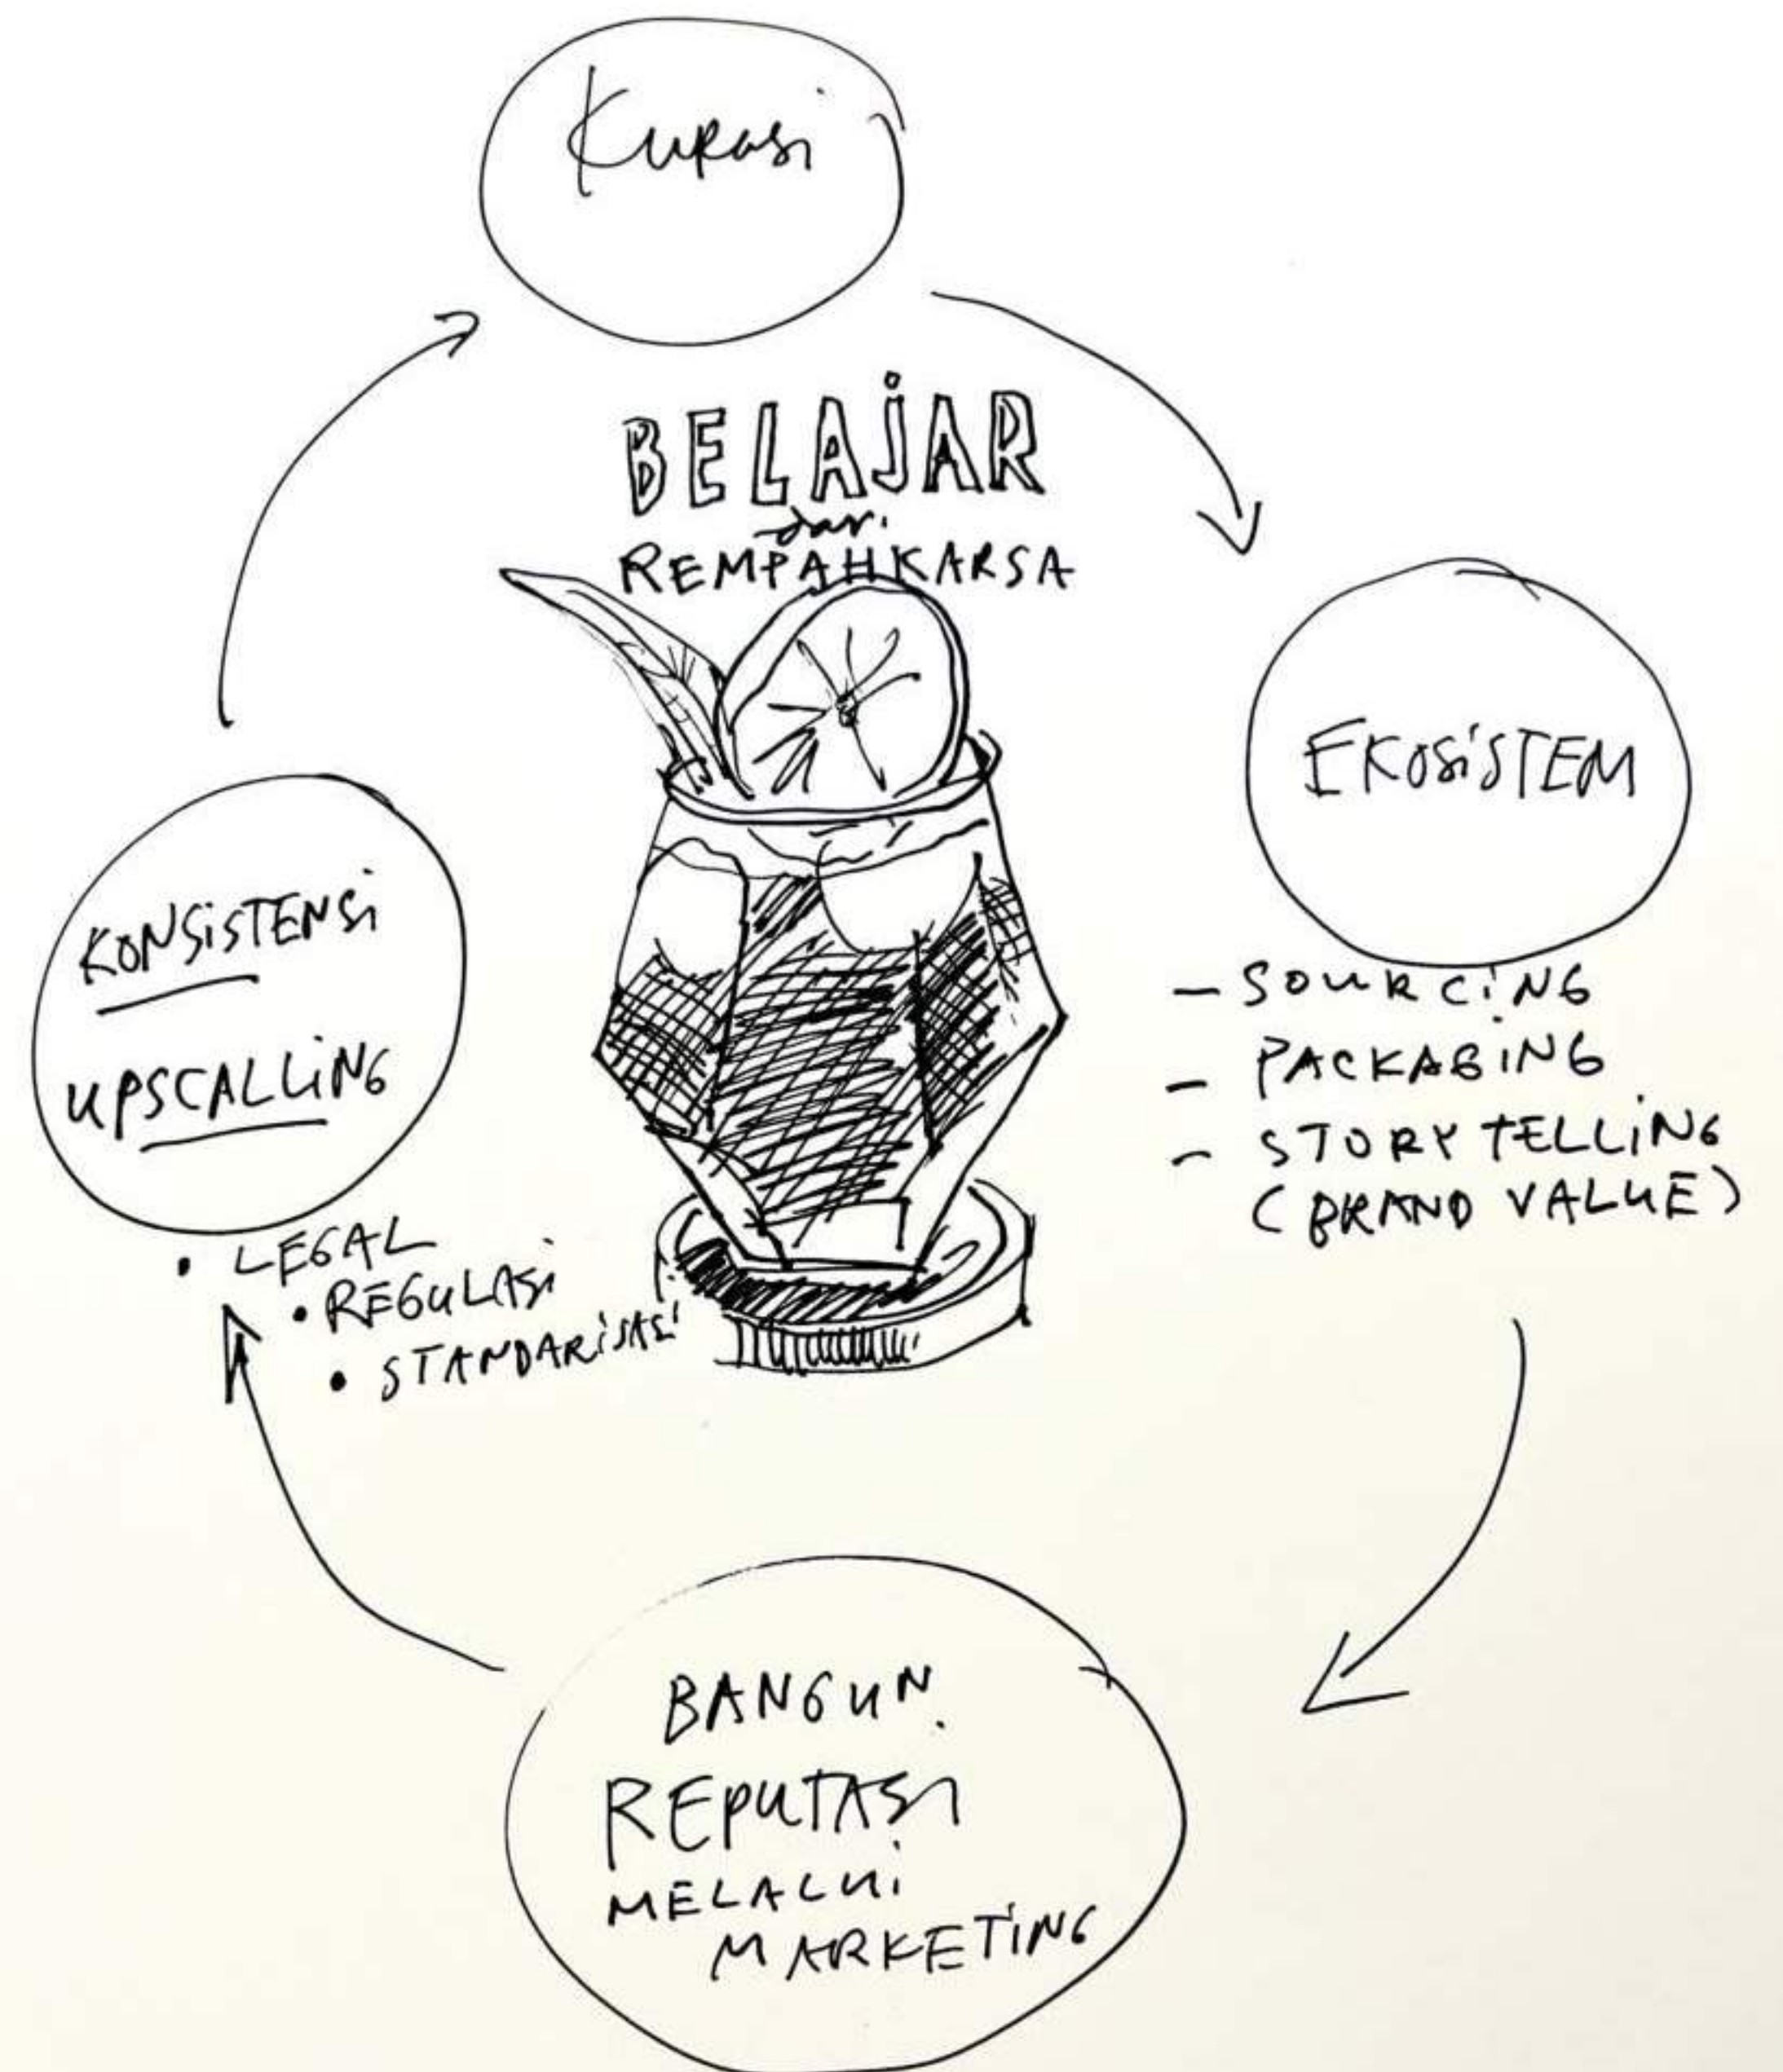 Kurasi
BELAJAR
dari
REMPAHKARSA
EKOSiSTEM
- SOURCiNG
- PACKAGiNG
- STORYTELLiNG
(BRAND VALUE)
BANGUN
REPUTASi
MELALUi
MARKETiNG
KONSiSTENSi
UPSCALLiNG
• LEGAL
• REGULASi
• STANDARiSASi